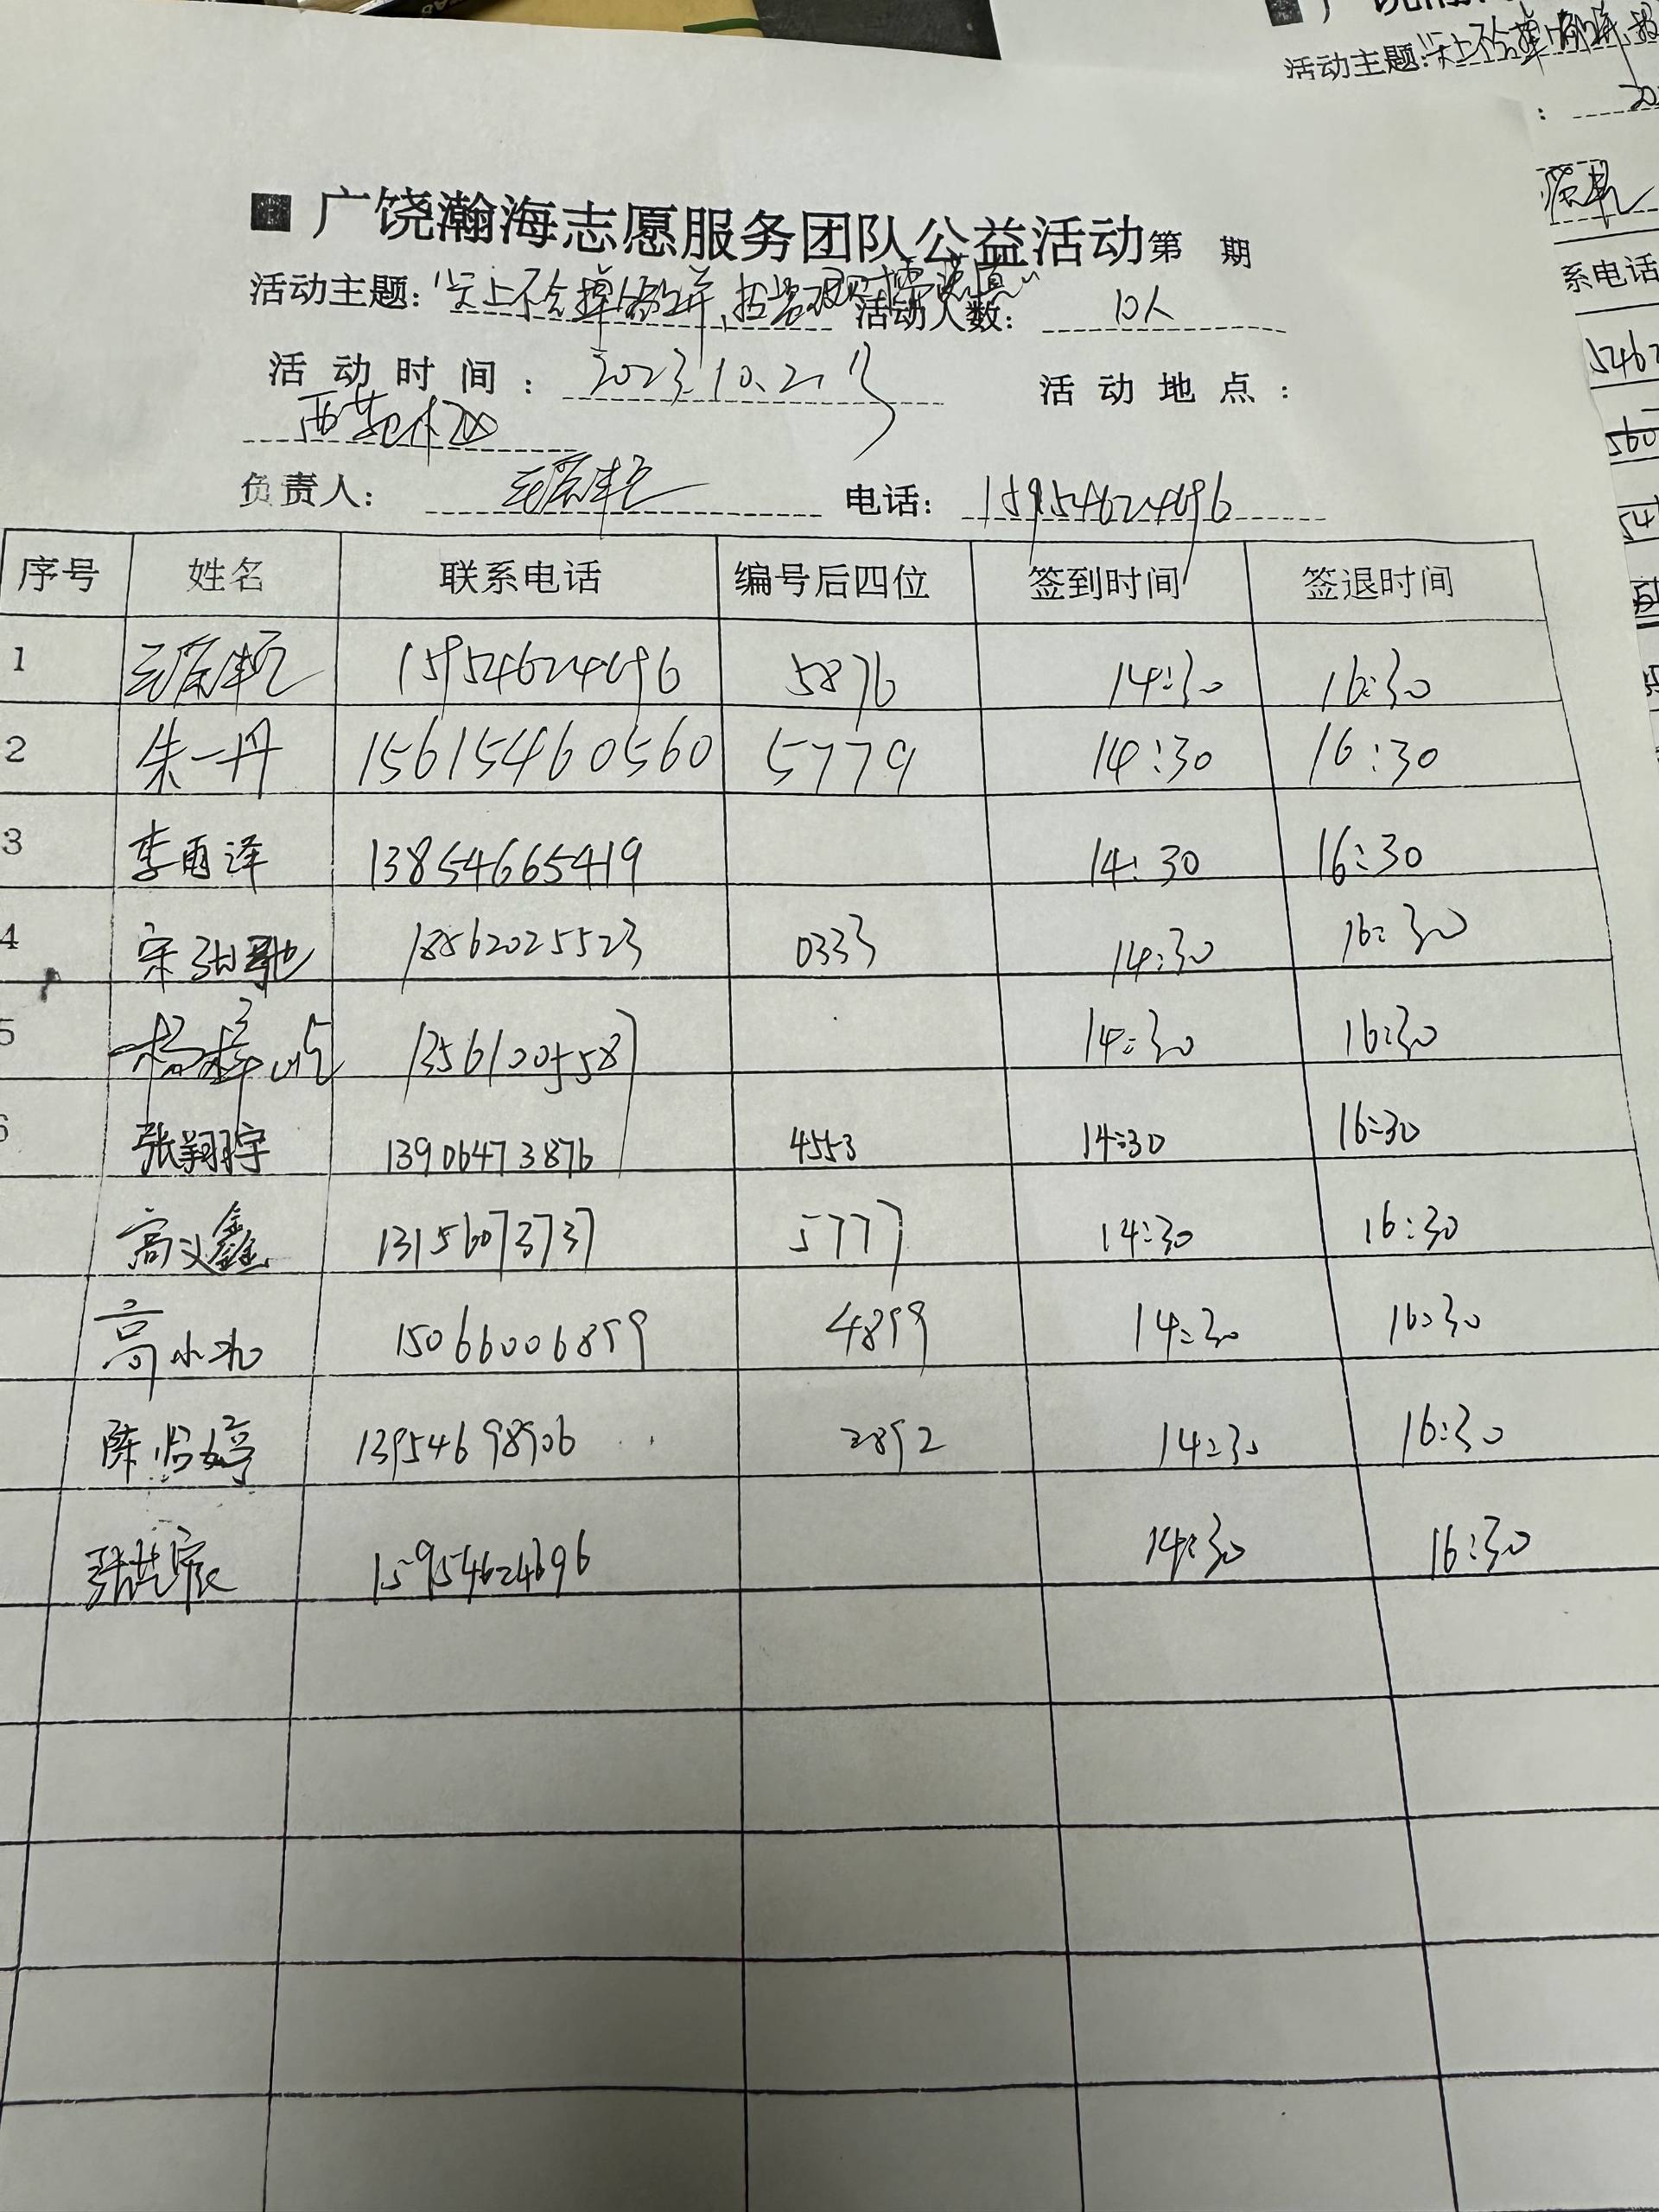 ■ 广饶瀚海志愿服务团队公益活动第 期
活动主题:"天上不会掉馅饼, 活动人数: 10人
活动时间: 2023.10.21 活动地点:
西苑社区
负责人: 电话: 15954624696
序号 姓名 联系电话 编号后四位 签到时间 签退时间
1 15954624696 5876 14:30 16:30
2 朱一丹 15615460560 5779 14:30 16:30
3 李雨泽 13854665419 14:30 16:30
4 宋弛 18562025523 0333 14:30 16:30
5 杨梓屹 13561005587 14:30 16:30
6 张翔宇 13906473876 4553 14:30 16:30
高义鑫 13156073737 5777 14:30 16:30
高小 15066006899 4899 14:30 16:30
陈怡婷 13954698906 2892 14:30 16:30
张艺宸 15954624696 14:30 16:30
活动主题:天上不会掉馅饼
系电话